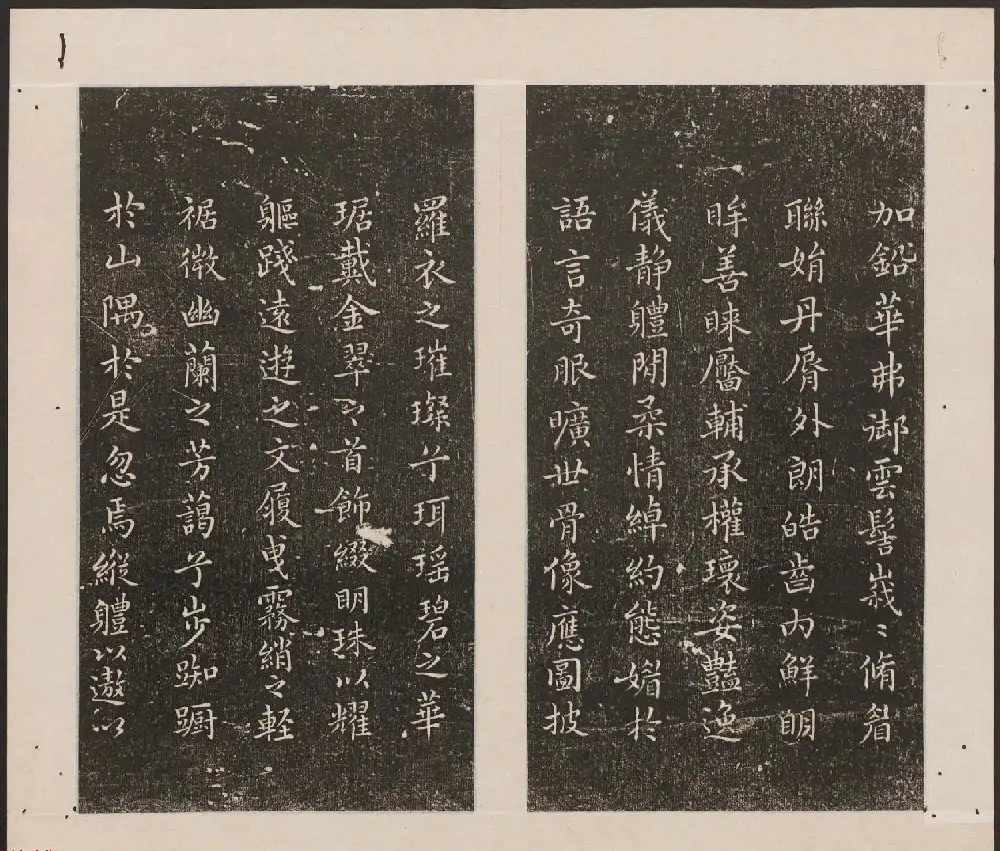 加鉛華弗御雲髻峩〻脩眉
聯娟丹脣外朗皓齒内鮮明
眸善睞靨輔承權瓌姿豔逸
儀静軆閒柔情綽約態媚於
語言奇服曠世骨像應圖披
羅衣之璀璨兮珥瑶碧之華
琚戴金翠之首飾綴明珠以耀
軀踐遠遊之文履曵霧綃之輕
裾微幽蘭之芳藹兮步踟躕
於山隅於是忽焉縱軆以遨以